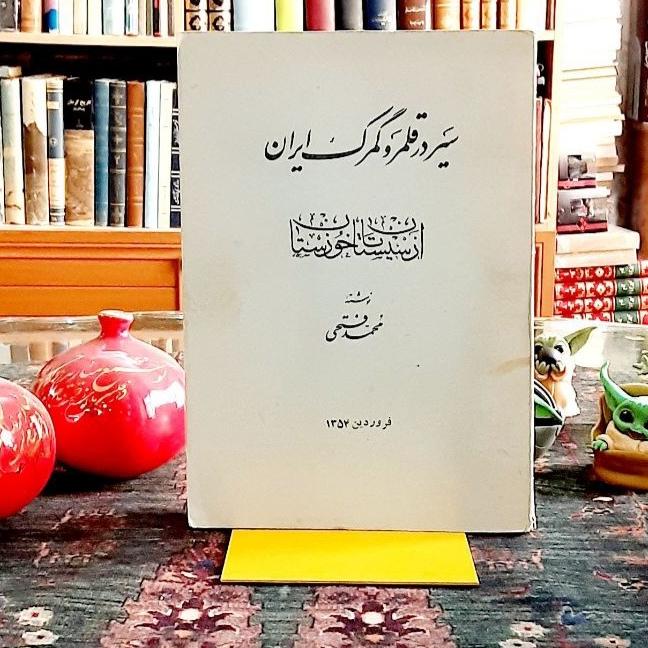 سیر در قلمرو گمرک ایران
از سیستان تا خوزستان
نوشته
محمد فتحی
فروردین ۱۳۵۴